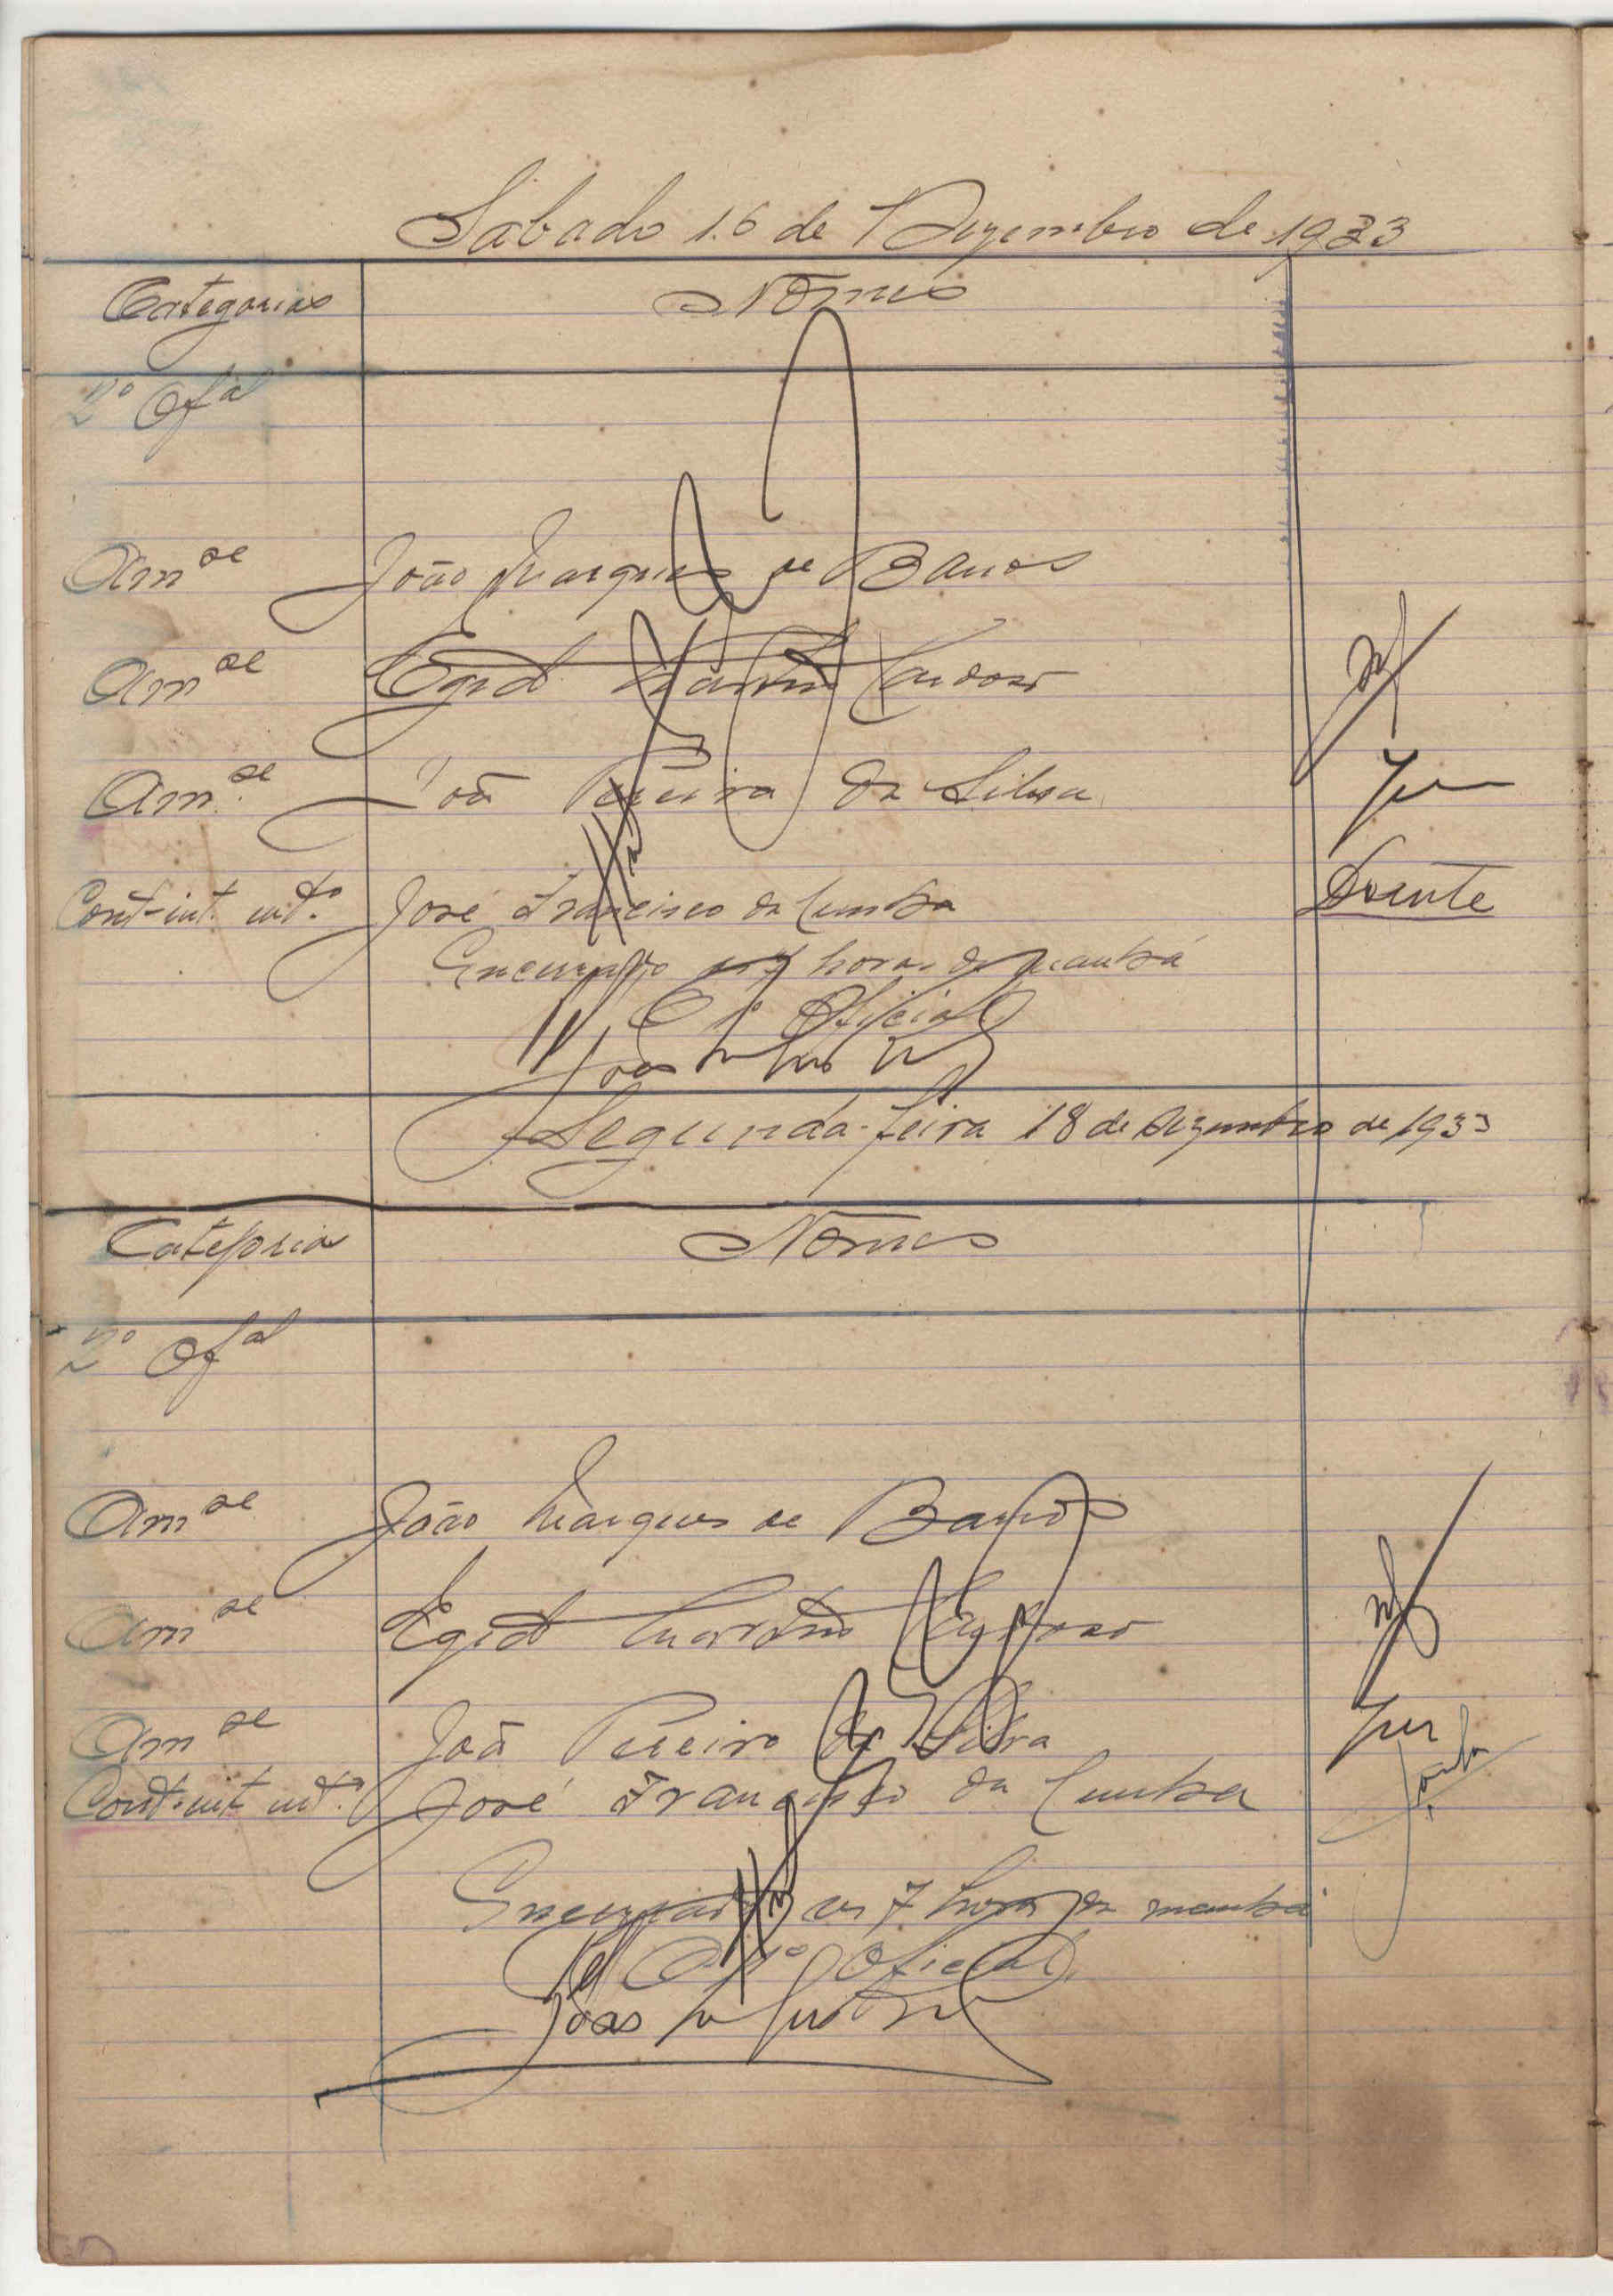 Sabado 16 de Dezembro de 1933
Categorias Nomes
2º Ofal
Amse João Marques de Barros
Amse Egidio Martins Cardoso
Amse João Pereira da Silva
Cont-int. int.º José Francisco da Cunha Doente
Encerrado as 7 horas da manhã
O 1º Oficial
Segunda-feira 18 de Dezembro de 1933
Categoria Nomes
2º Ofal
Amse João Marques de Barros
Amse Egidio Martins Cardoso
Amse João Pereira da Silva
Cont-int int.º José Francisco da Cunha
Encerrado as 7 horas da manhã
O 1º Oficial